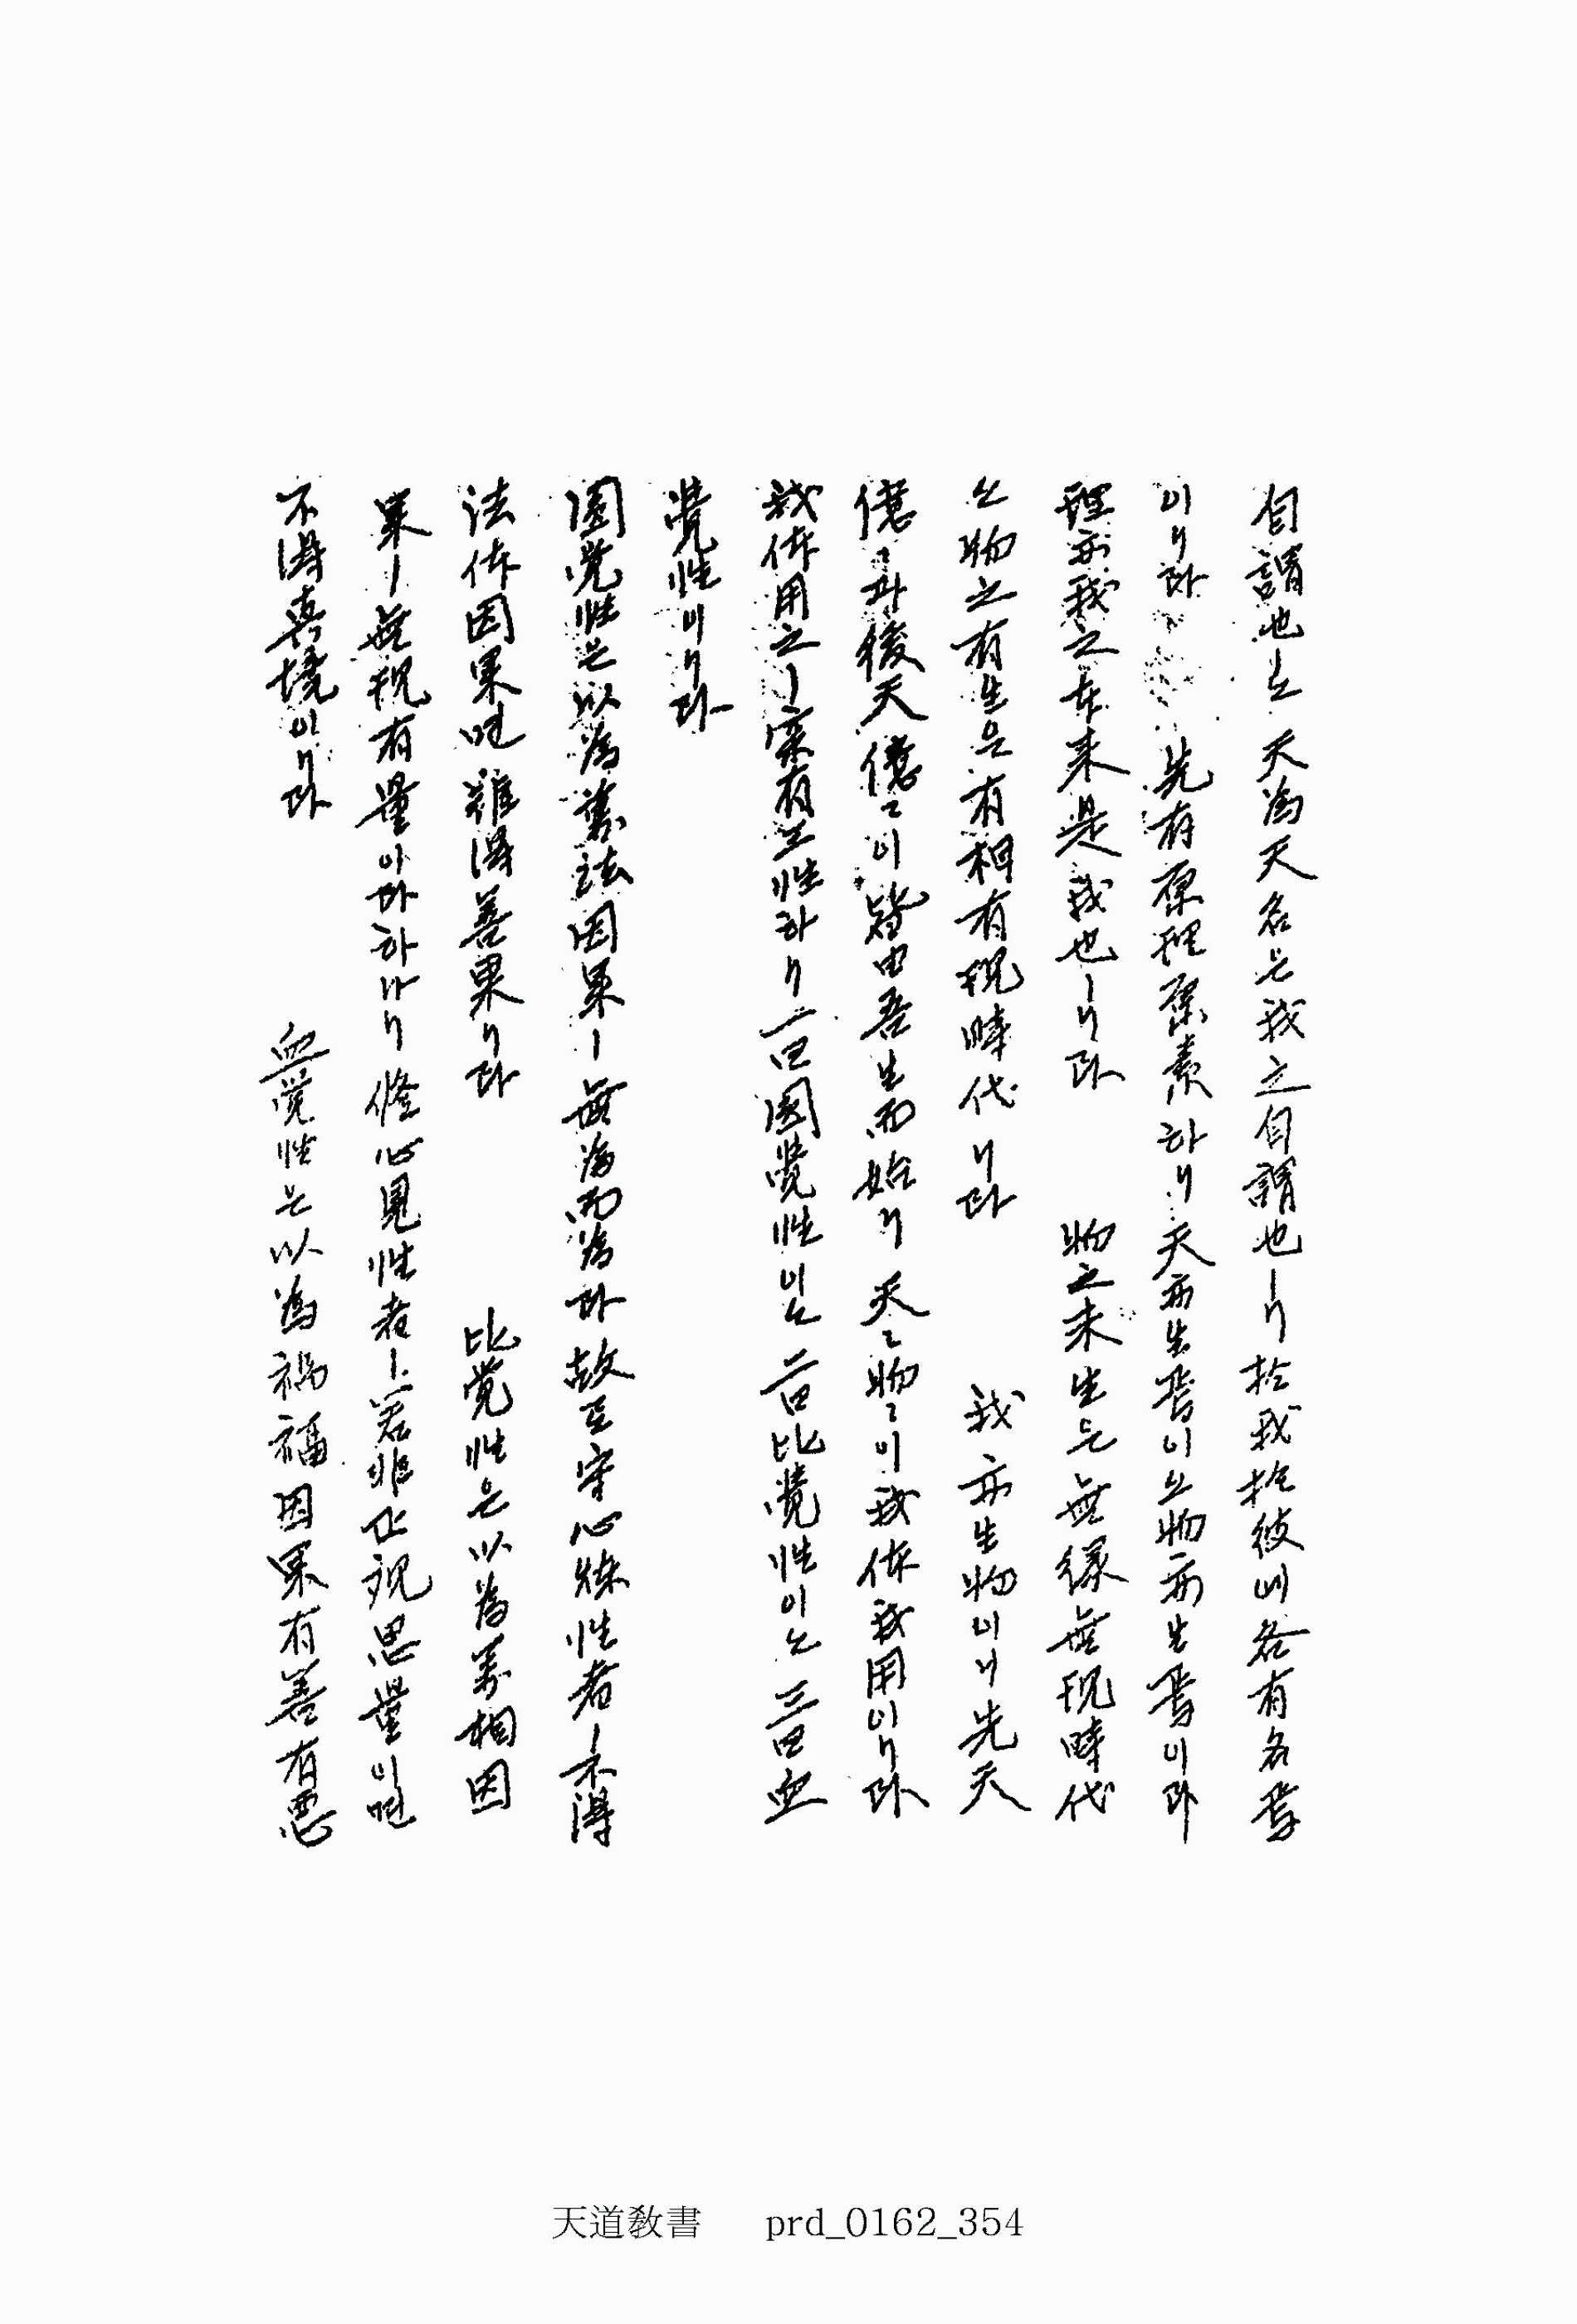 自謂也ㅣ오 天為天名은 我之自謂也ㅣ니 於我於彼에 各有名焉
이니라 先有原理原素하니 天亦生焉이오 物亦生焉이라
理亦我之本來是我也ㅣ니라 物之未生은 無緣無現時代
오 物之有生은 有相有現時代니라 我亦生物이니 先天
億〻과 後天億〻이 皆由吾生而始니 天〻物〻이 我体我用이니라
我体用之ㅣ 實有三性하니 一曰圓覺性이오 二曰比覺性이오 三曰血
覺性이니라
圓覺性은 以為萬法因果ㅣ 無為而為라 故로 守心煉性者ㅣ 不得
法体因果면 難得善果니라 比覺性은 以為萬相因
果ㅣ 無現有量이라 하나니 修心見性者ㅣ 若非正視思量이면
不得真境이니라 血覺性은 以為禍福因果有善有惡
天道敎書 prd_0162_354